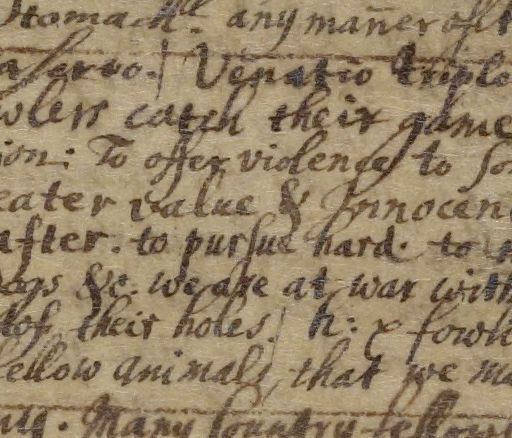 Stomach. any man̄er of
Venatio triplex
catch their game
ion: To offer violence to
eater value & Innocenc
after. to pursue hard. to
dogs &c. we are at war with
of their holes. h: & fowl
fellow animals, that we ma
Many Country fellows